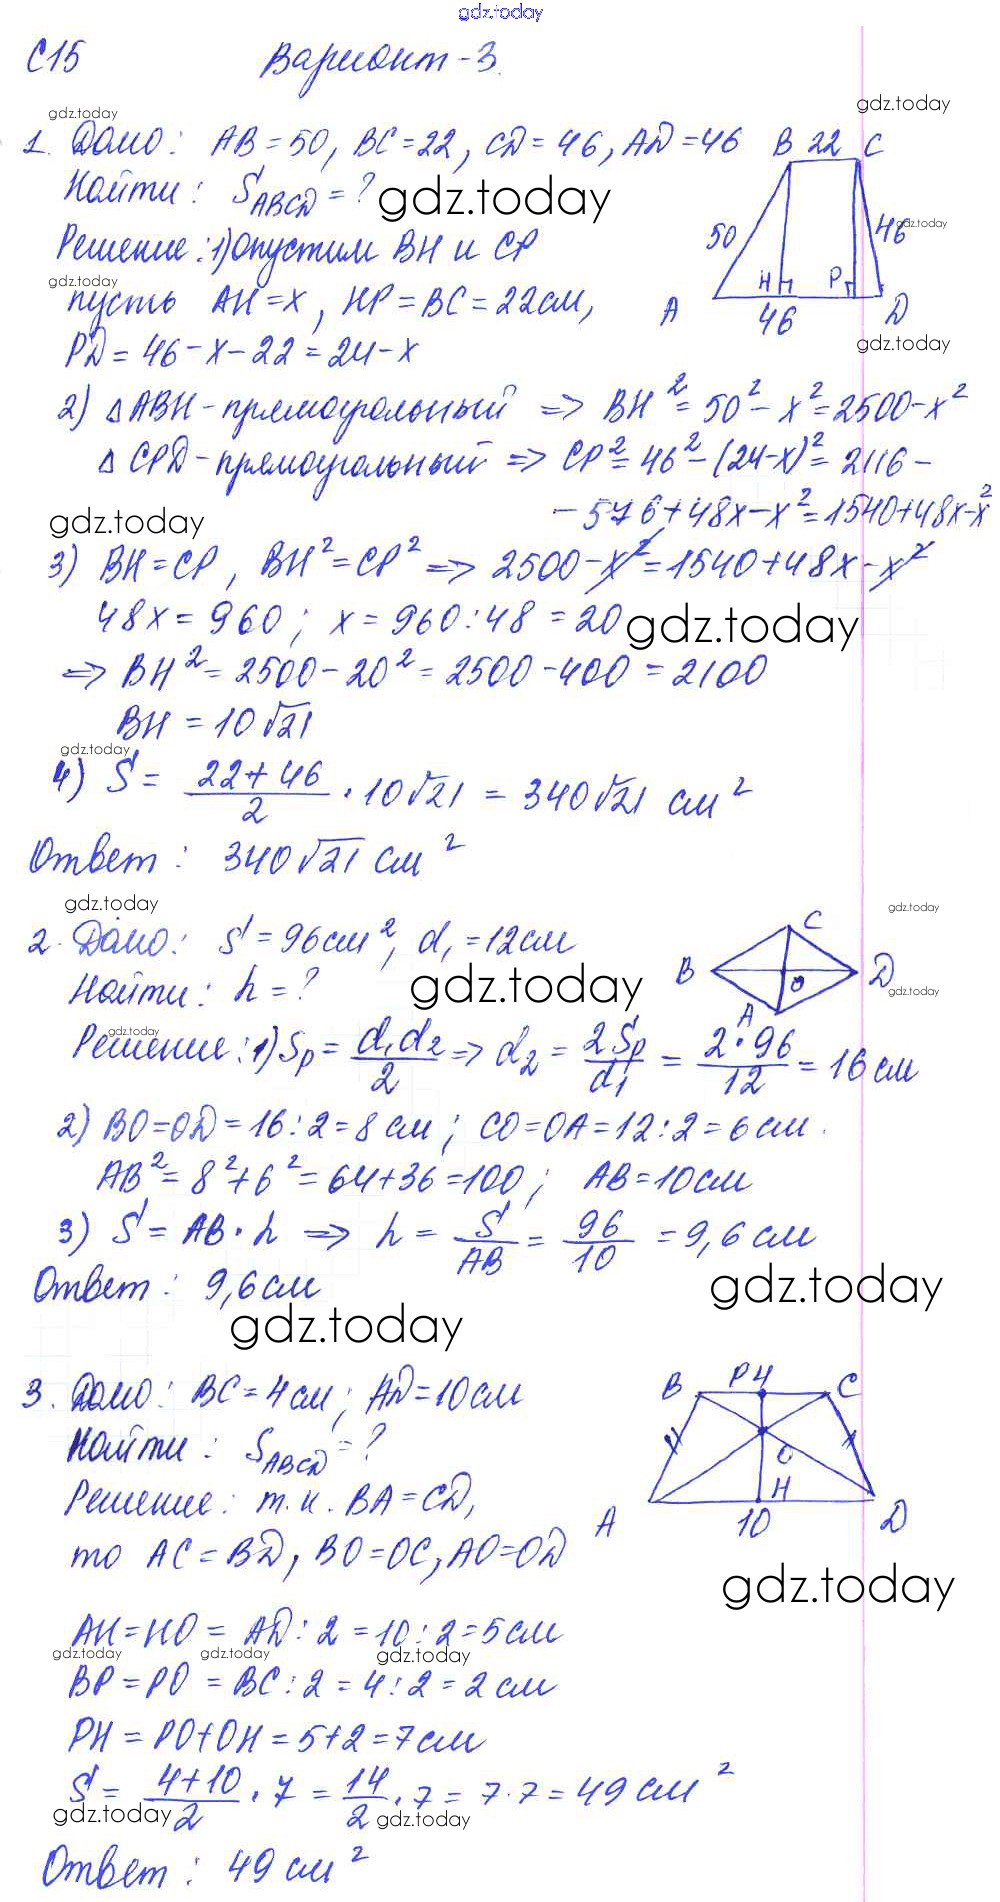 gdz.today
С15 Вариант-3.
gdz.today gdz.today
1. Дано: AB=50, BC=22, CD=46, AD=46 B 22 C
Найти: S_ABCD=? gdz.today
50 46 gdz.today
Решение: 1) Опустим BH и CP
gdz.today
H P
пусть AH=x, HP=BC=22см, A 46 D
PD=46-x-22=24-x gdz.today
2) △ABH-прямоугольный => BH²=50²-x²=2500-x²
△CPD-прямоугольный => CP²=46²-(24-x)²=2116-
-576+48x-x²=1540+48x-x²
gdz.today
3) BH=CP, BH²=CP² => 2500-x²=1540+48x-x²
48x=960; x=960:48=20 gdz.today
=> BH²=2500-20²=2500-400=2100
BH=10√21
gdz.today
4) S=(22+46)/2·10√21=340√21 см²
Ответ: 340√21 см²
gdz.today gdz.today
2. Дано: S=96см², d₁=12см C
Найти: h=? gdz.today B O D
gdz.today
A
gdz.today
Решение: 1) Sр=d₁d₂/2 => d₂=2Sр/d₁=2·96/12=16см
2) BO=OD=16:2=8см; CO=OA=12:2=6см.
AB²=8²+6²=64+36=100; AB=10см
3) S=AB·h => h=S/AB=96/10=9,6см
Ответ: 9,6см gdz.today
gdz.today
3. Дано: BC=4см; AD=10см B P4 C
Найти: S_ABCD=? O
Решение: т.к. BA=CD, H
A 10 D
то AC=BD, BO=OC, AO=OD
gdz.today
AH=HO=AD:2=10:2=5см
gdz.today gdz.today gdz.today
BP=PO=BC:2=4:2=2см
PH=PO+OH=5+2=7см
S=(4+10)/2·7=14/2·7=7·7=49см²
gdz.today gdz.today
Ответ: 49см²